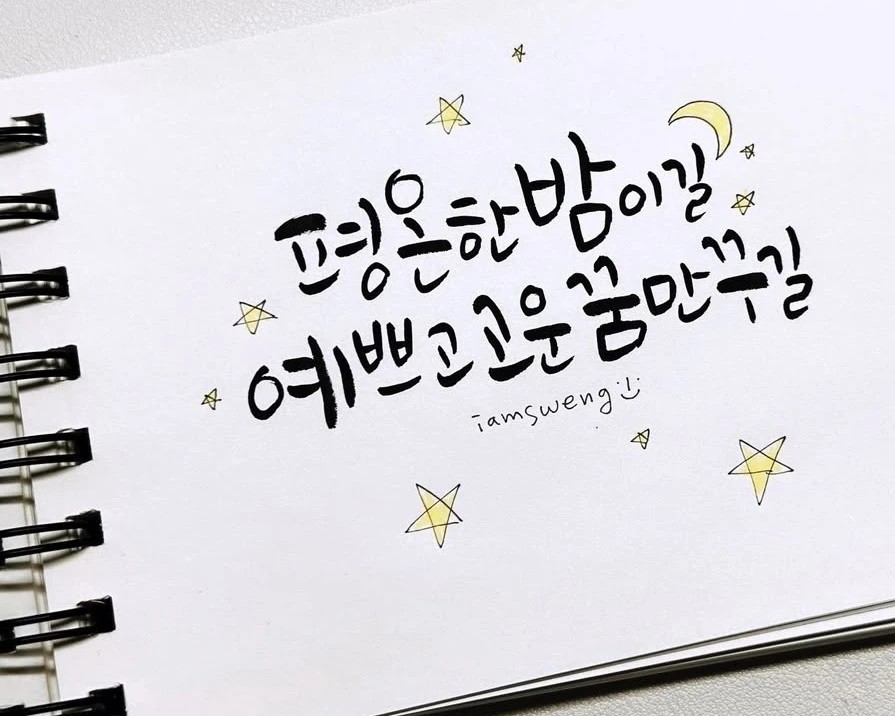 평온한 밤이길
예쁘고 고운 꿈만 꾸길
iamsweng:)